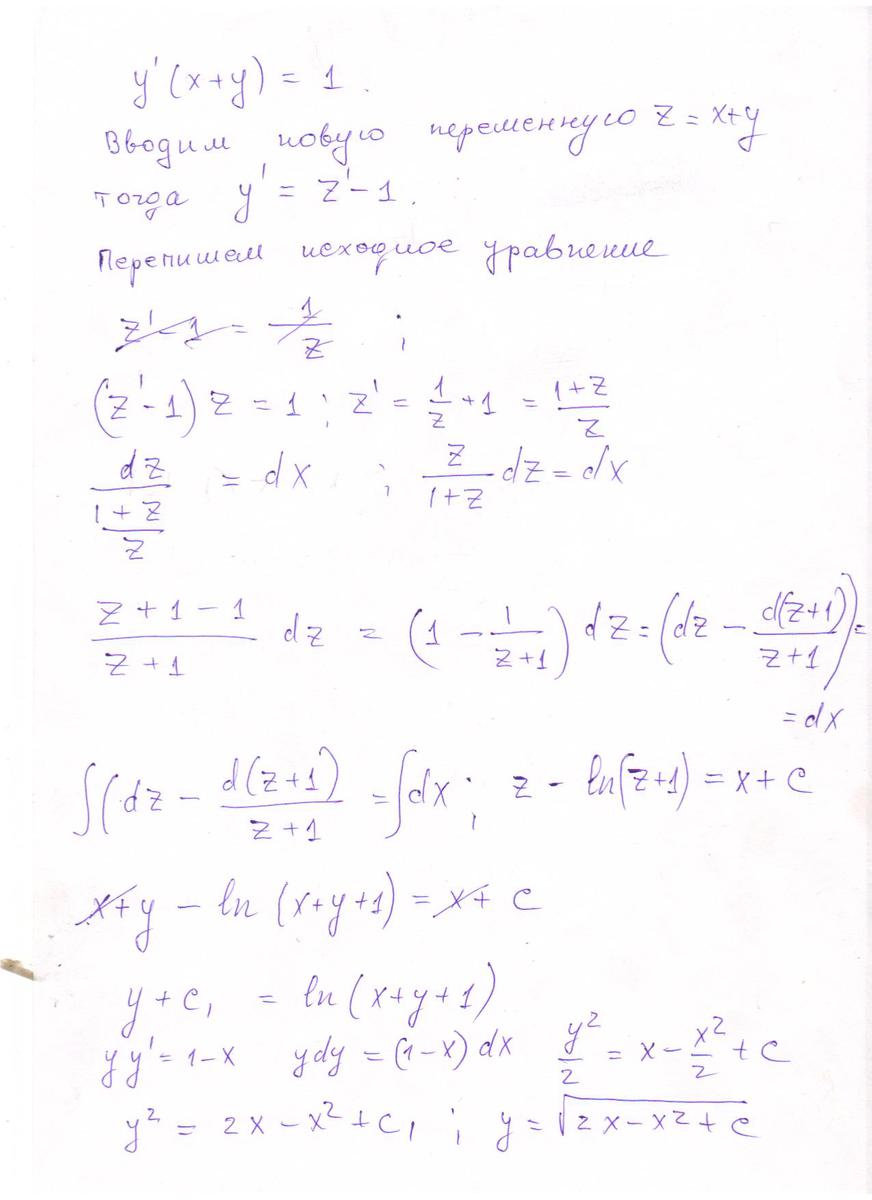 y'(x+y) = 1.
Вводим новую переменную z = x+y
тогда y' = z' - 1.
Перепишем исходное уравнение
z' - 1 = 1/z ;
(z' - 1) z = 1 ; z' = 1/z + 1 = (1+z)/z
dz/((1+z)/z) = dx ; z/(1+z) dz = dx
(z + 1 - 1)/(z + 1) dz = (1 - 1/(z+1)) dz = (dz - d(z+1)/(z+1)) =
= dx
∫(dz - d(z+1)/(z+1) = ∫dx ; z - ln(z+1) = x + c
x + y - ln (x+y+1) = x + c
y + c₁ = ln (x+y+1)
yy' = 1-x ydy = (1-x) dx y²/2 = x - x²/2 + c
y² = 2x - x² + c₁ ; y = √(2x - x² + c)